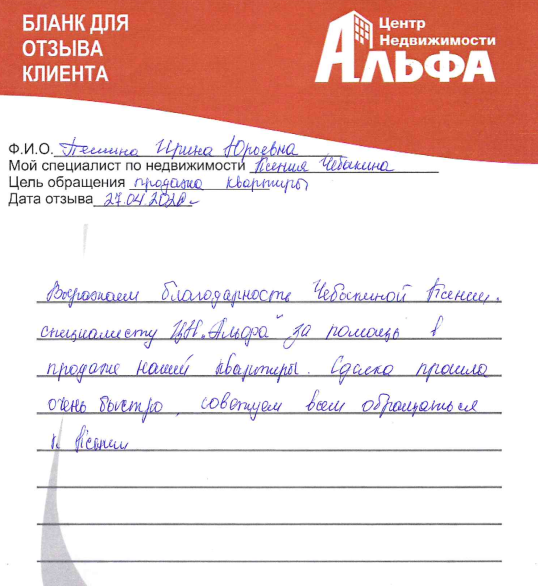 БЛАНК ДЛЯ
ОТЗЫВА
КЛИЕНТА
Центр
Недвижимости
АЛЬФА
Ф.И.О. Пешина Ирина Юрьевна
Мой специалист по недвижимости Ксения Чебыкина
Цель обращения продажа квартиры
Дата отзыва 27.04.2020г
Выражаем благодарность Чебыкиной Ксении,
специалисту ЦН „Альфа" за помощь в
продаже нашей квартиры. Сделка прошла
очень быстро, советуем всем обращаться
к Ксении